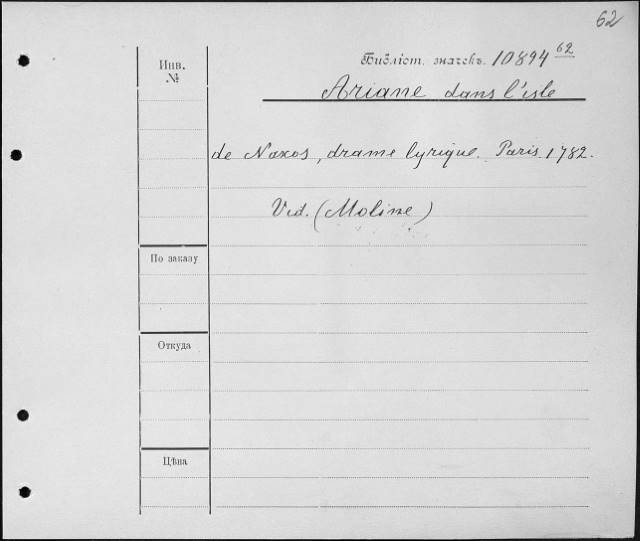 62
Инв.
№
Библіот. значекъ. 10894 62
Ariane dans l'isle
de Naxos, drame lyrique. Paris. 1782.
Vid. (Moline)
По заказу
Откуда
Цѣна